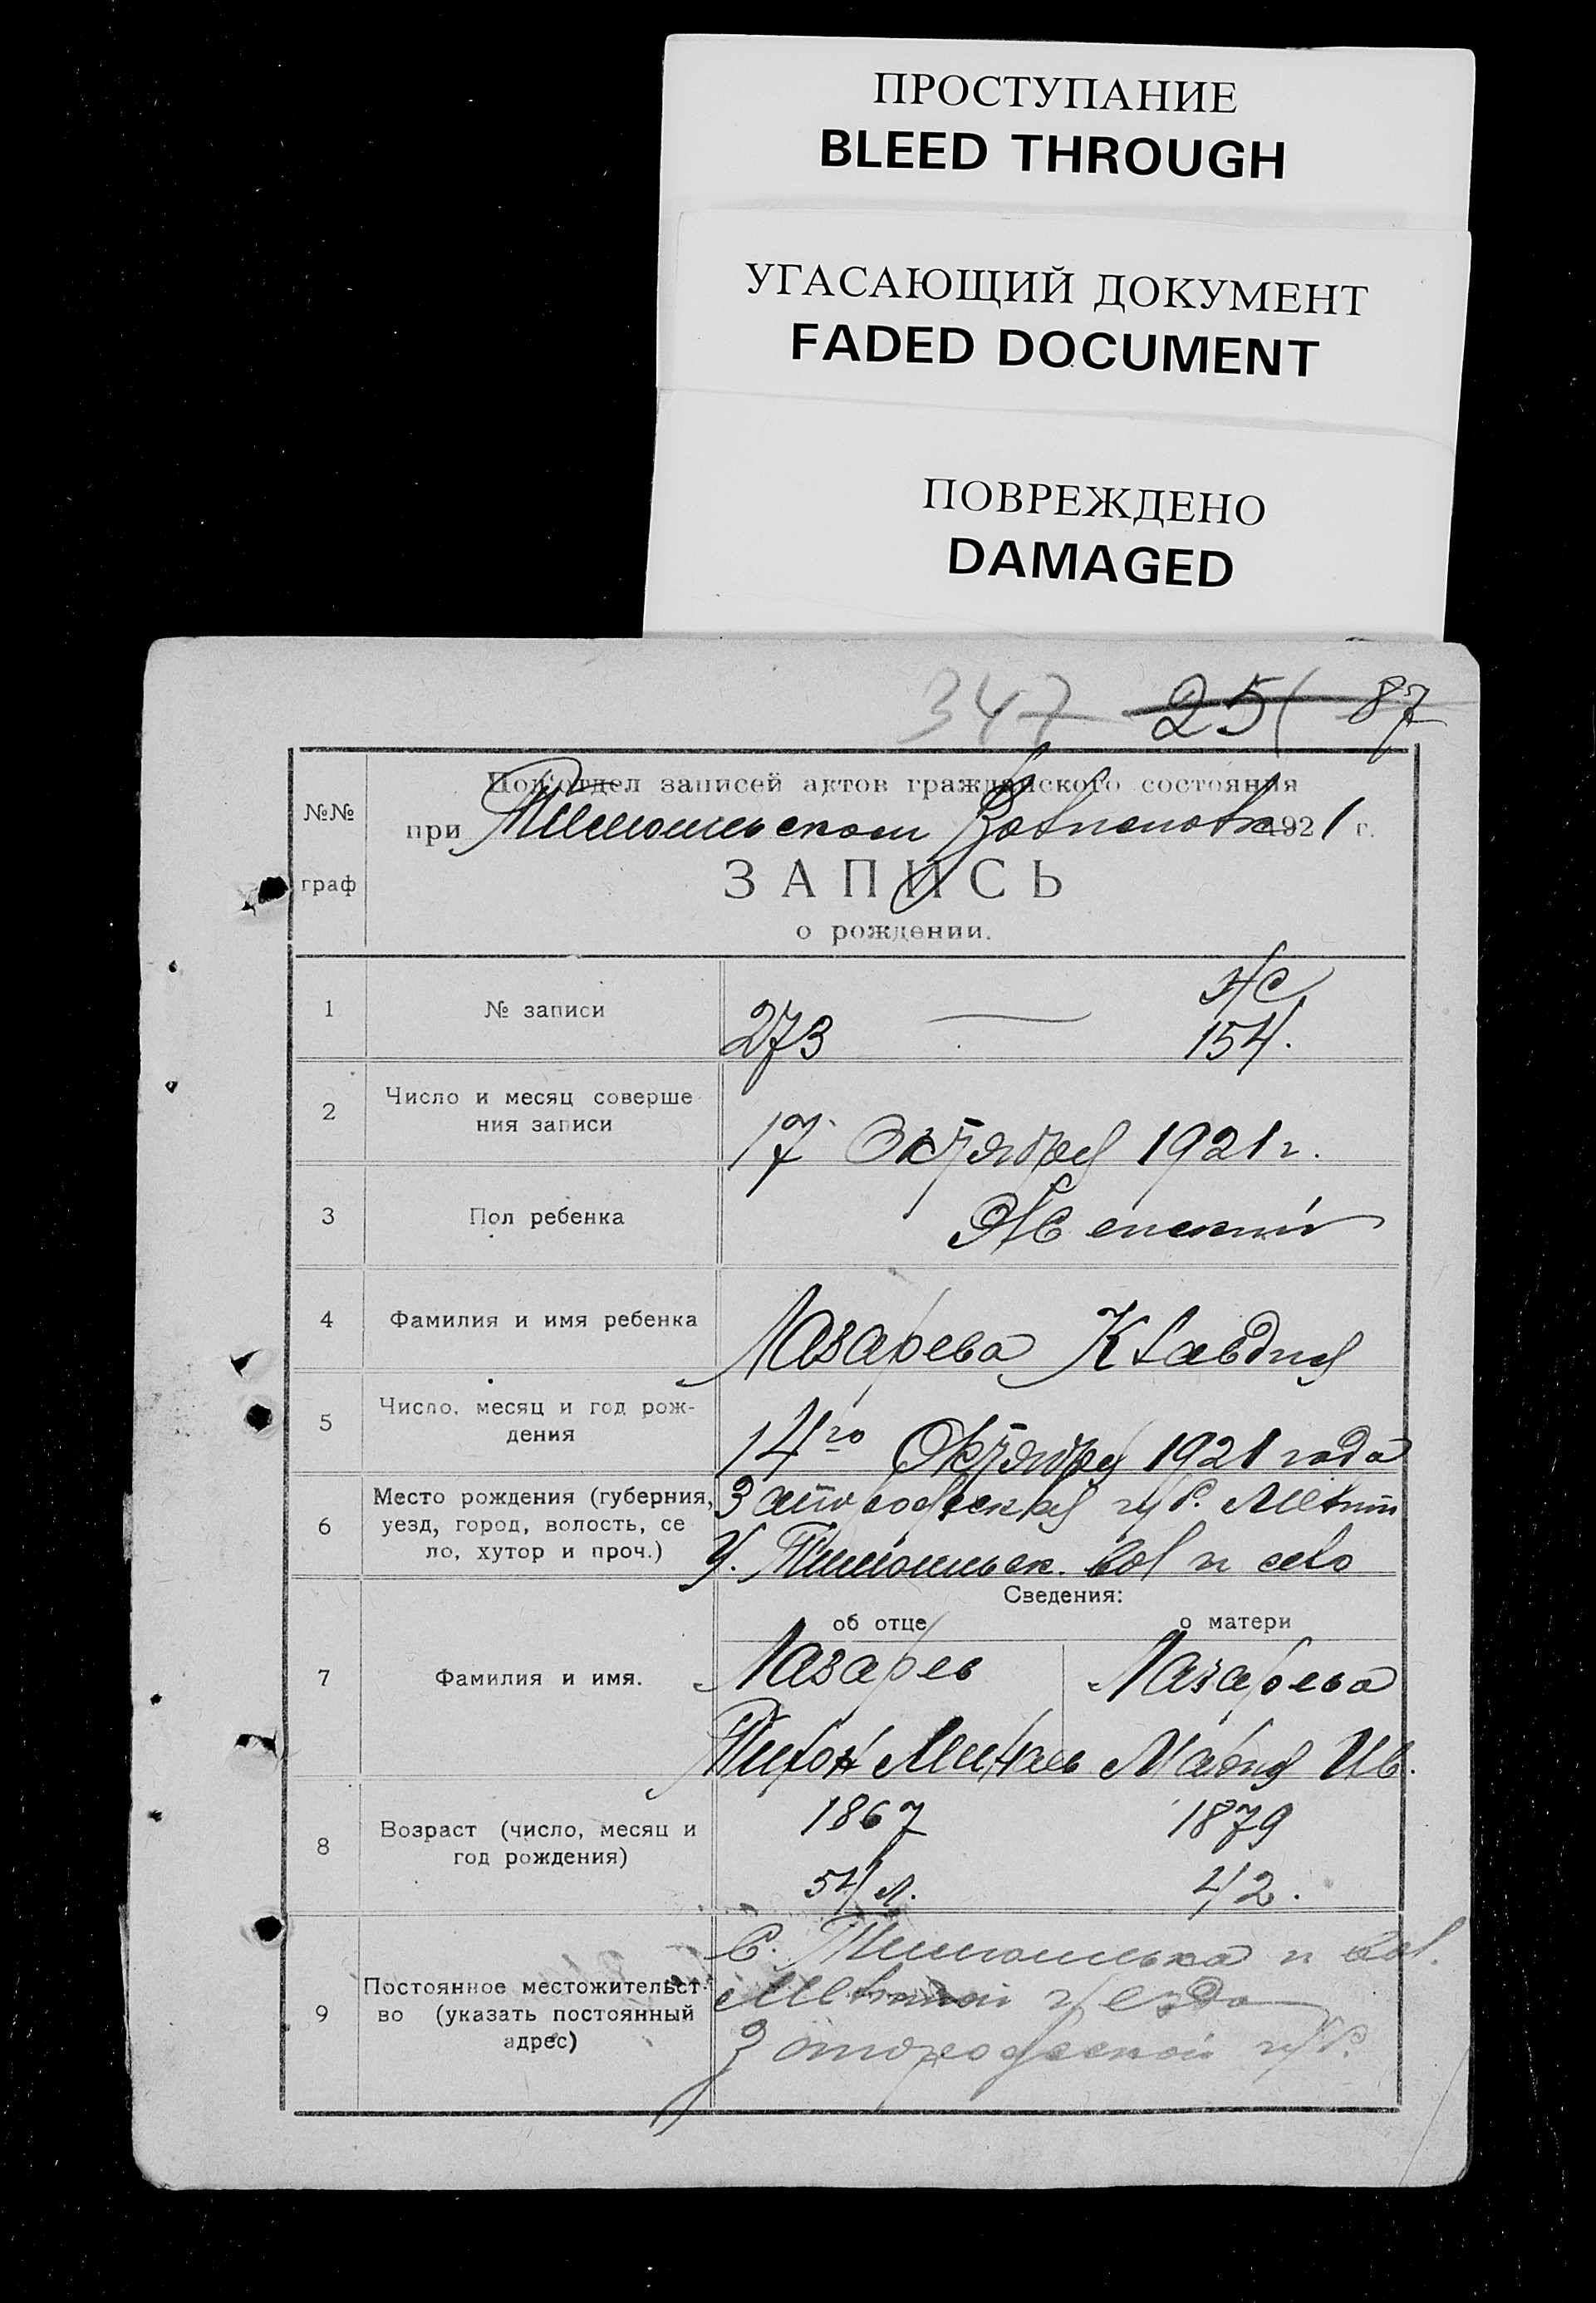 ПРОСТУПАНИЕ
BLEED THROUGH
УГАСАЮЩИЙ ДОКУМЕНТ
FADED DOCUMENT
ПОВРЕЖДЕНО
DAMAGED
347 25 87
Под'отдел записей актов гражданского состояния
№№
при Тимошевском 1921 г.
граф
ЗАПИСЬ
о рождении.
1 № записи 273 — ж/с 154.
2 Число и месяц соверше
ния записи 17 Октября 1921 г.
3 Пол ребенка Женский
4 Фамилия и имя ребенка Лазарева Клавдия
5 Число, месяц и год рож-
дения 14го Октября 1921 года
Место рождения (губерния,
6 уезд, город, волость, се
ло, хутор и проч.) у. вол и село
Сведения:
об отце о матери
7 Фамилия и имя. Лазарев Лазарева
Тихон Минаев Мария Ив.
8 Возраст (число, месяц и
год рождения)
1867 1879
54 л. 42.
С. и вол.
9 Постоянное местожительст-
во (указать постоянный
адрес)
уезда
губ.